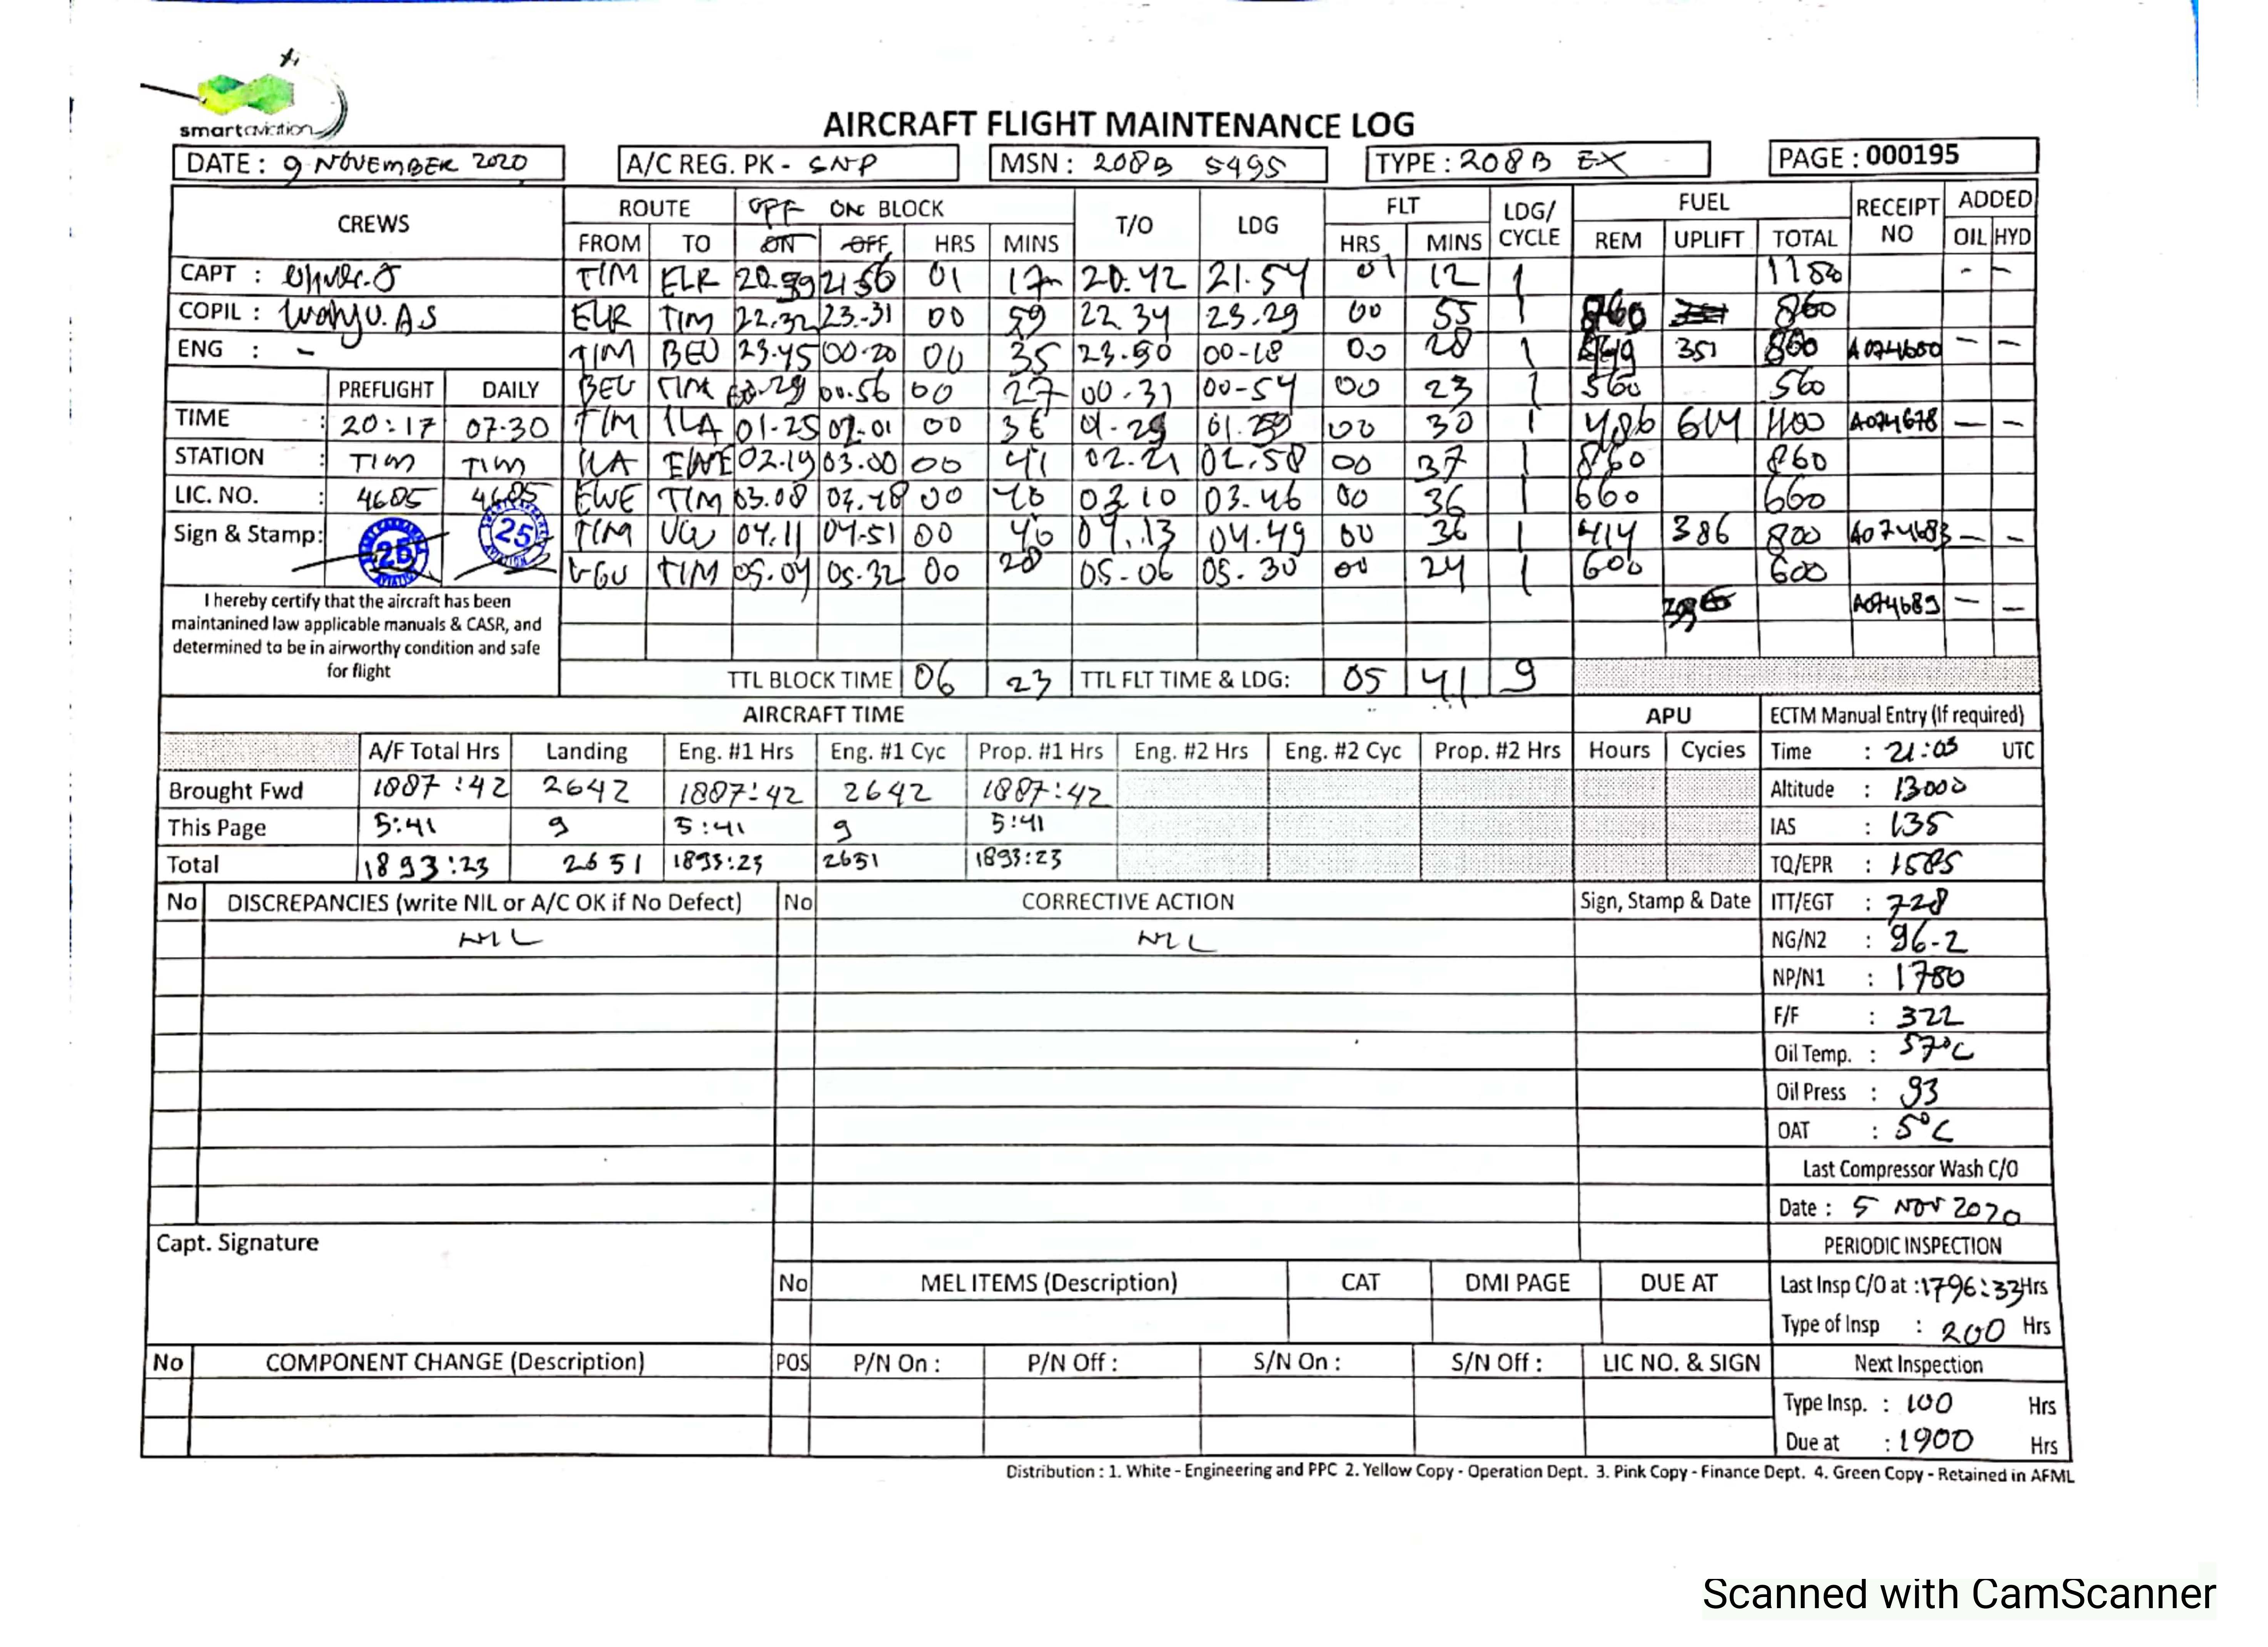 smartaviation
AIRCRAFT FLIGHT MAINTENANCE LOG
DATE : 9 NOVEMBER 2020 A/C REG. PK - SNP MSN : 208B 5495 TYPE : 208B EX PAGE : 000195
CREWS ROUTE OFF ON BLOCK T/O LDG FLT LDG/ CYCLE FUEL RECEIPT NO ADDED
FROM TO ON OFF HRS MINS HRS MINS REM UPLIFT TOTAL OIL HYD
CAPT : TIM ELR 20.39 21.56 01 17 20.42 21.54 01 12 1 1180 - -
COPIL : Wahyu. AS ELR TIM 22.32 23.31 00 59 22.34 23.29 00 55 1 860 860
ENG : - TIM BEU 23.45 00-20 00 35 23.50 00-18 00 28 1 351 860 A074660 - -
PREFLIGHT DAILY BEU TIM 00.29 00.56 00 27 00.31 00-54 00 23 1 560 560
TIME : 20:17 07.30 TIM ILA 01-25 02-01 00 36 01.29 01.59 00 30 1 486 614 1100 A074678 - -
STATION : TIM TIM ILA EWE 02.19 03.00 00 41 02.21 02.58 00 37 1 860 860
LIC. NO. : 4605 4605 EWE TIM 03.08 03.48 00 40 03.10 03.46 00 36 1 660 660
Sign & Stamp: 25 25 TIM UGU 04.11 04.51 00 40 04.13 04.49 00 36 1 414 386 800 A074683 - -
UGU TIM 05.04 05.32 00 28 05.06 05.30 00 24 1 600 600
A074689 - -
I hereby certify that the aircraft has been
maintanined law applicable manuals & CASR, and
determined to be in airworthy condition and safe
for flight
TTL BLOCK TIME 06 23 TTL FLT TIME & LDG: 05 41 9
AIRCRAFT TIME APU ECTM Manual Entry (If required)
A/F Total Hrs Landing Eng. #1 Hrs Eng. #1 Cyc Prop. #1 Hrs Eng. #2 Hrs Eng. #2 Cyc Prop. #2 Hrs Hours Cycies Time : 21:03 UTC
Brought Fwd 1887:42 2642 1887:42 2642 1887:42 Altitude : 13000
This Page 5:41 9 5:41 9 5:41 IAS : 135
Total 1893:23 2651 1893:23 2651 1893:23 TQ/EPR : 1585
No DISCREPANCIES (write NIL or A/C OK if No Defect) No CORRECTIVE ACTION Sign, Stamp & Date ITT/EGT : 728
NIL NIL NG/N2 : 96-2
NP/N1 : 1780
F/F : 322
Oil Temp. : 57°C
Oil Press : 93
OAT : 5°C
Last Compressor Wash C/O
Date : 5 NOV 2020
Capt. Signature PERIODIC INSPECTION
No MEL ITEMS (Description) CAT DMI PAGE DUE AT Last Insp C/O at :1796:33 Hrs
Type of Insp : 200 Hrs
No COMPONENT CHANGE (Description) POS P/N On : P/N Off : S/N On : S/N Off : LIC NO. & SIGN Next Inspection
Type Insp. : 100 Hrs
Due at : 1900 Hrs
Distribution : 1. White - Engineering and PPC 2. Yellow Copy - Operation Dept. 3. Pink Copy - Finance Dept. 4. Green Copy - Retained in AFML
Scanned with CamScanner